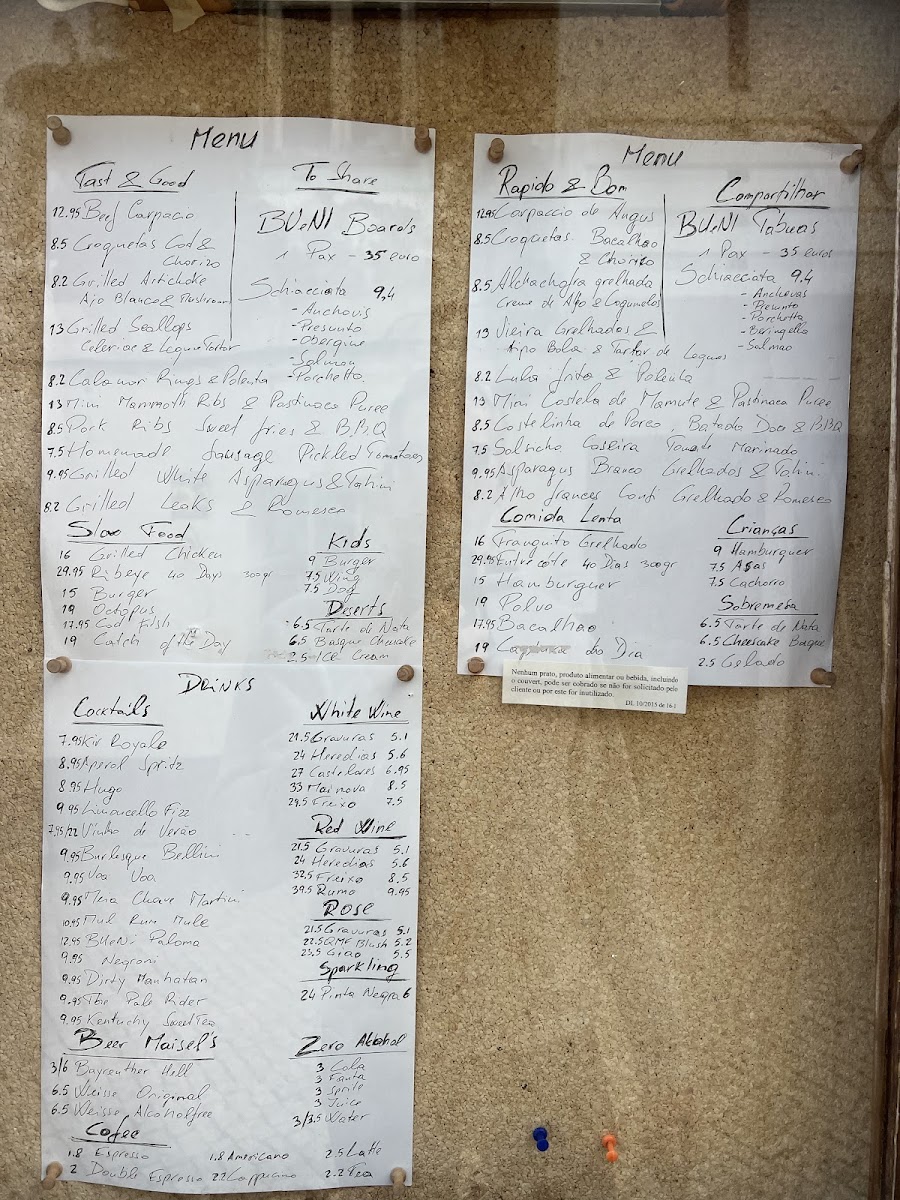 Menu
Fast & Good
12.95 Beef Carpacio
8.5 Croquetas Cod &
Chorizo
8.2 Grilled Artichoke
Ajo Blanco & Mushroom
13 Grilled Scallops
Celeriac & Legume Tartar
To Share
BUeNI Boards
1 Pax - 35 euro
Schiacciata 9,4
- Anchovis
- Presunto
- Obergine
- Salmon
- Porchetta
8.2 Calamar Rings & Polenta
13 Mini Mammoth Ribs & Pastinaca Puree
8.5 Pork Ribs Sweet fries & BBQ
7.5 Homemade Sausage Pickled Tomatoes
9.95 Grilled White Asparagus & Tahini
8.2 Grilled Leaks & Romesco
Slow Food
16 Grilled Chicken
29.95 Ribeye 40 Days 300gr
15 Burger
19 Octopus
17.95 Cod Fish
19 Catch of the Day
Kids
9 Burger
7.5 Wing
7.5 Dog
Diserts
6.5 Tarte de Nata
6.5 Basque Cheescake
2.5 ICE Cream
Menu
Rapido & Bom
12.95 Carpaccio de Angus
8.5 Croquetas Bacalhao
& Chorizo
8.5 Alchachofra grelhada
Creme de Alho & Cogumelos
13 Vieira Grelhados &
Aipo Bola & Tartar de Legumes
Compartilhar
BUeNI Tabuas
1 Pax - 35 euros
Schiacciata 9.4
- Anchovas
- Presunto
- Porchetta
- Beringella
- Salmao
8.2 Lula frita & Polenta
13 Mini Costela de Mamute & Pastinaca Puree
8.5 Costelinha de Porco, Batado Doce & BBQ
7.5 Salsicha Caseira Tomate Marinado
9.95 Asparagus Branco Grelhados & Tahini
8.2 Alho frances Confi Grelhado & Romesco
Comida Lenta
16 Franguito Grelhado
29.95 Entrecôte 40 Dias 300gr
15 Hamburguer
19 Polvo
17.95 Bacalhao
19 do Dia
Crianças
9 Hamburguer
7.5 Asas
7.5 Cachorro
Sobremesa
6.5 Tarte de Nata
6.5 Cheescake Basque
2.5 Gelado
Nenhum prato, produto alimentar ou bebida, incluindo
o couvert, pode ser cobrado se não for solicitado pelo
cliente ou por este for inutilizado.
DL 10/2015 de 16.1
DRINKS
Cocktails
7.95 Kir Royale
8.95 Aperol Spritz
8.95 Hugo
9.95 Limoncello Fizz
7.95/22 Vinho de Verão
9.95 Burlesque Bellini
9.95 Voa Voa
9.95 Meia Chave Martini
10.95 Mul Rum Mule
12.95 BUeNi Paloma
9.95 Negroni
9.95 Dirty Manhatan
9.95 The Pale Rider
9.95 Kentucky Sweet Tea
Beer Maisel's
3/6 Bayreuther Hell
6.5 Weisse Original
6.5 Weisse Alcoholfree
White Wine
21.5 Gravuras 5.1
24 Heredias 5.6
27 Castelares 6.95
33 Mainova 8.5
29.5 Freixo 7.5
Red Wine
21.5 Gravuras 5.1
24 Heredias 5.6
32.5 Freixo 8.5
39.5 Rumo 9.95
Rose
21.5 Gravuras 5.1
22.5 QMF Blush 5.2
23.5 Grao 5.5
Sparkling
24 Pinta Negra 6
Zero Alkohol
3 Cola
3 Fanta
3 Sprite
3 Juice
3/3.5 Water
Cofee
1.8 Espresso 1.8 Americano 2.5 Latte
2 Double Espresso 2.2 Cappucino 2.2 Tea